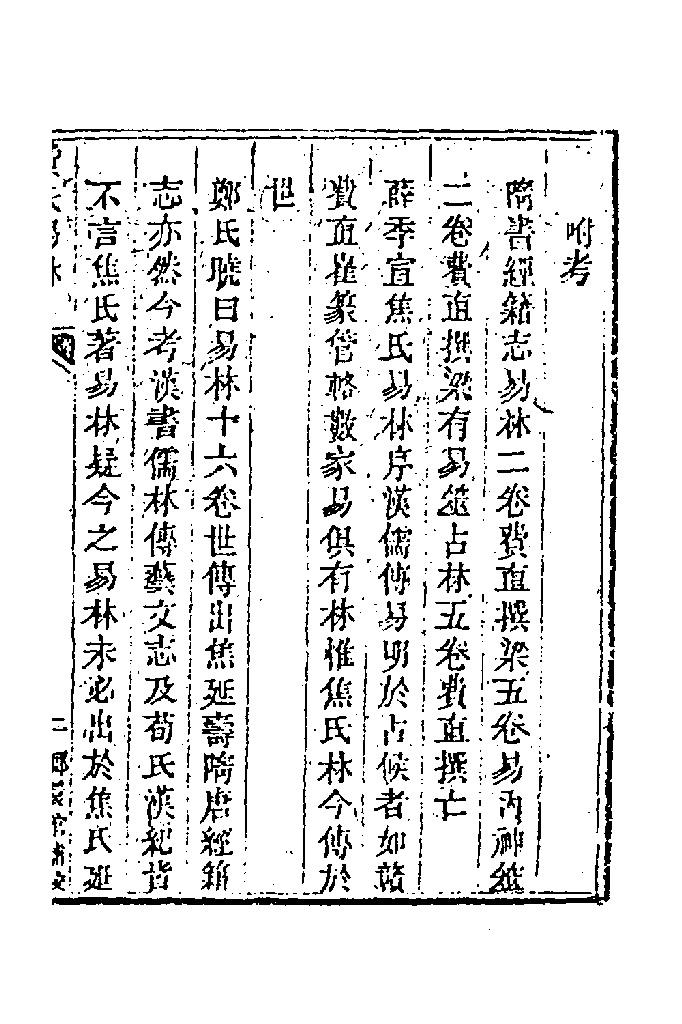 附考
隋書經籍志易林二卷費直撰梁五卷易內神筮
二卷費直撰梁有易筮占林五卷費直撰亡
薛季宣焦氏易林序漢儒傳易明於占候者如贛
費直崔篆管輅數家易俱有林惟焦氏林今傳於
世
鄭氏曉曰易林十六卷世傳出焦延壽隋唐經籍
志亦然今考漢書儒林傳藝文志及荀氏漢紀皆
不言焦氏著易林疑今之易林未必出於焦氏延
費氏易林
二